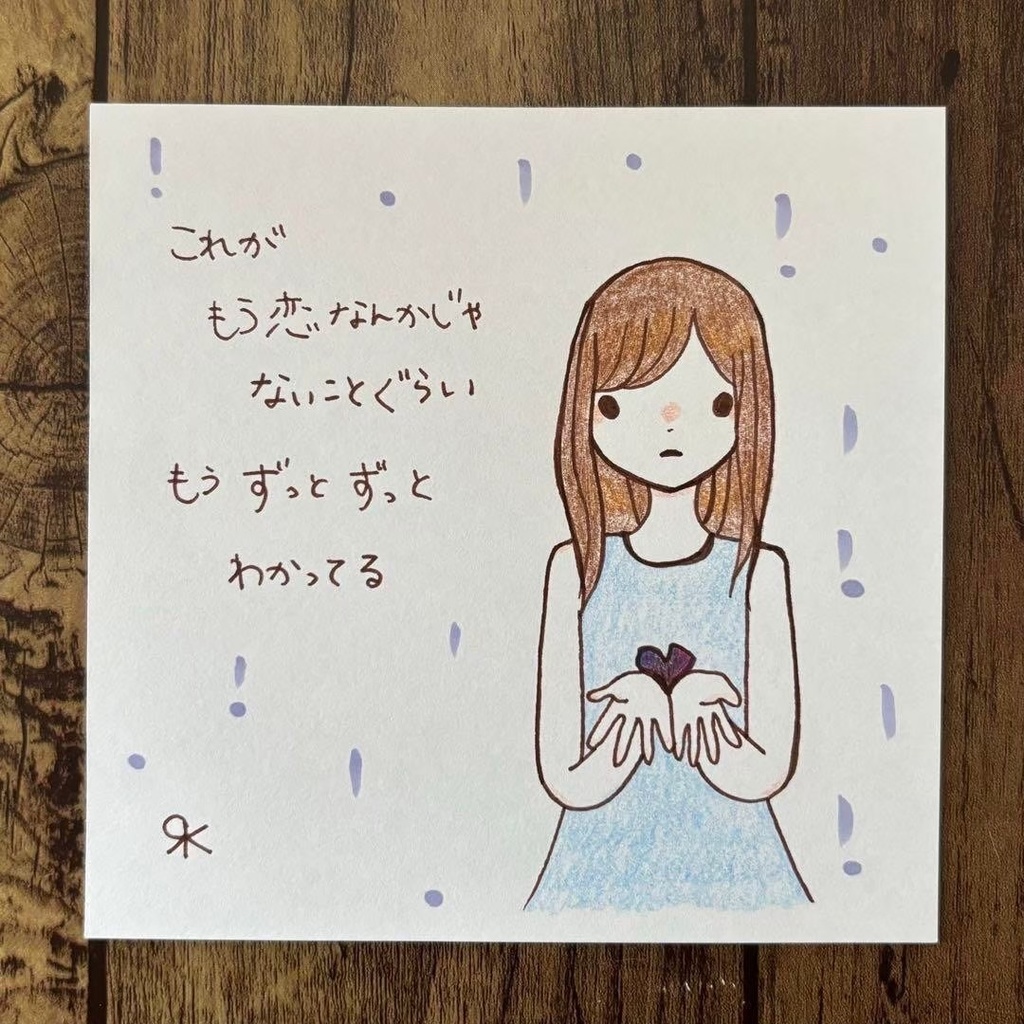 これが
もう恋なんかじゃ
ないことぐらい
もう ずっと ずっと
わかってる